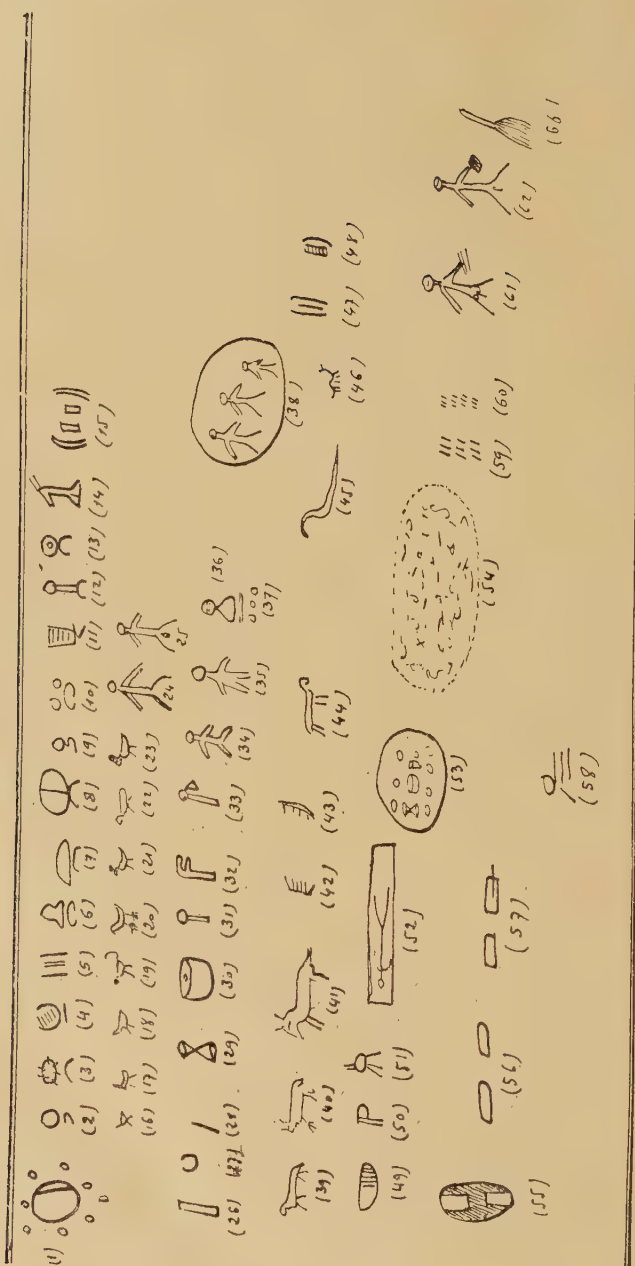 (1) (2) (3) (4) (5) (6) (7) (8) (9) (10) (11) (12) (13) (14) (15)
(16) (17) (18) (19) (20) (21) (22) (23) 24 25
(26) (27) (28) (29) (30) (31) (32) (33) (34) (35) (36) (37) (38)
(39) (40) (41) (42) (43) (44) (45) (46) (47) (48)
(49) (50) (51) (52) (53) (54)
(55) (56) (57) (58) (59) (60) (61) (62) (66)